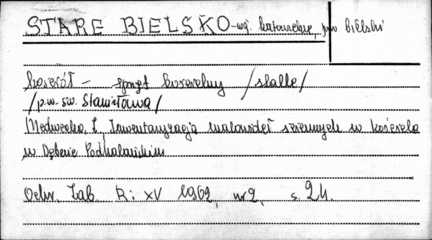 STARE BIELSKO - woj. katowickie, pow bielski
kościół - sprzęt kościelny /stalle/
/p.w. św. Stanisława/
Medwecka, Z. Inwentaryzacja malowideł ściennych w kościele
w Dębnie Podhalańskim
Ochr. Zab. R: XV 1962, nr 2, s. 24.